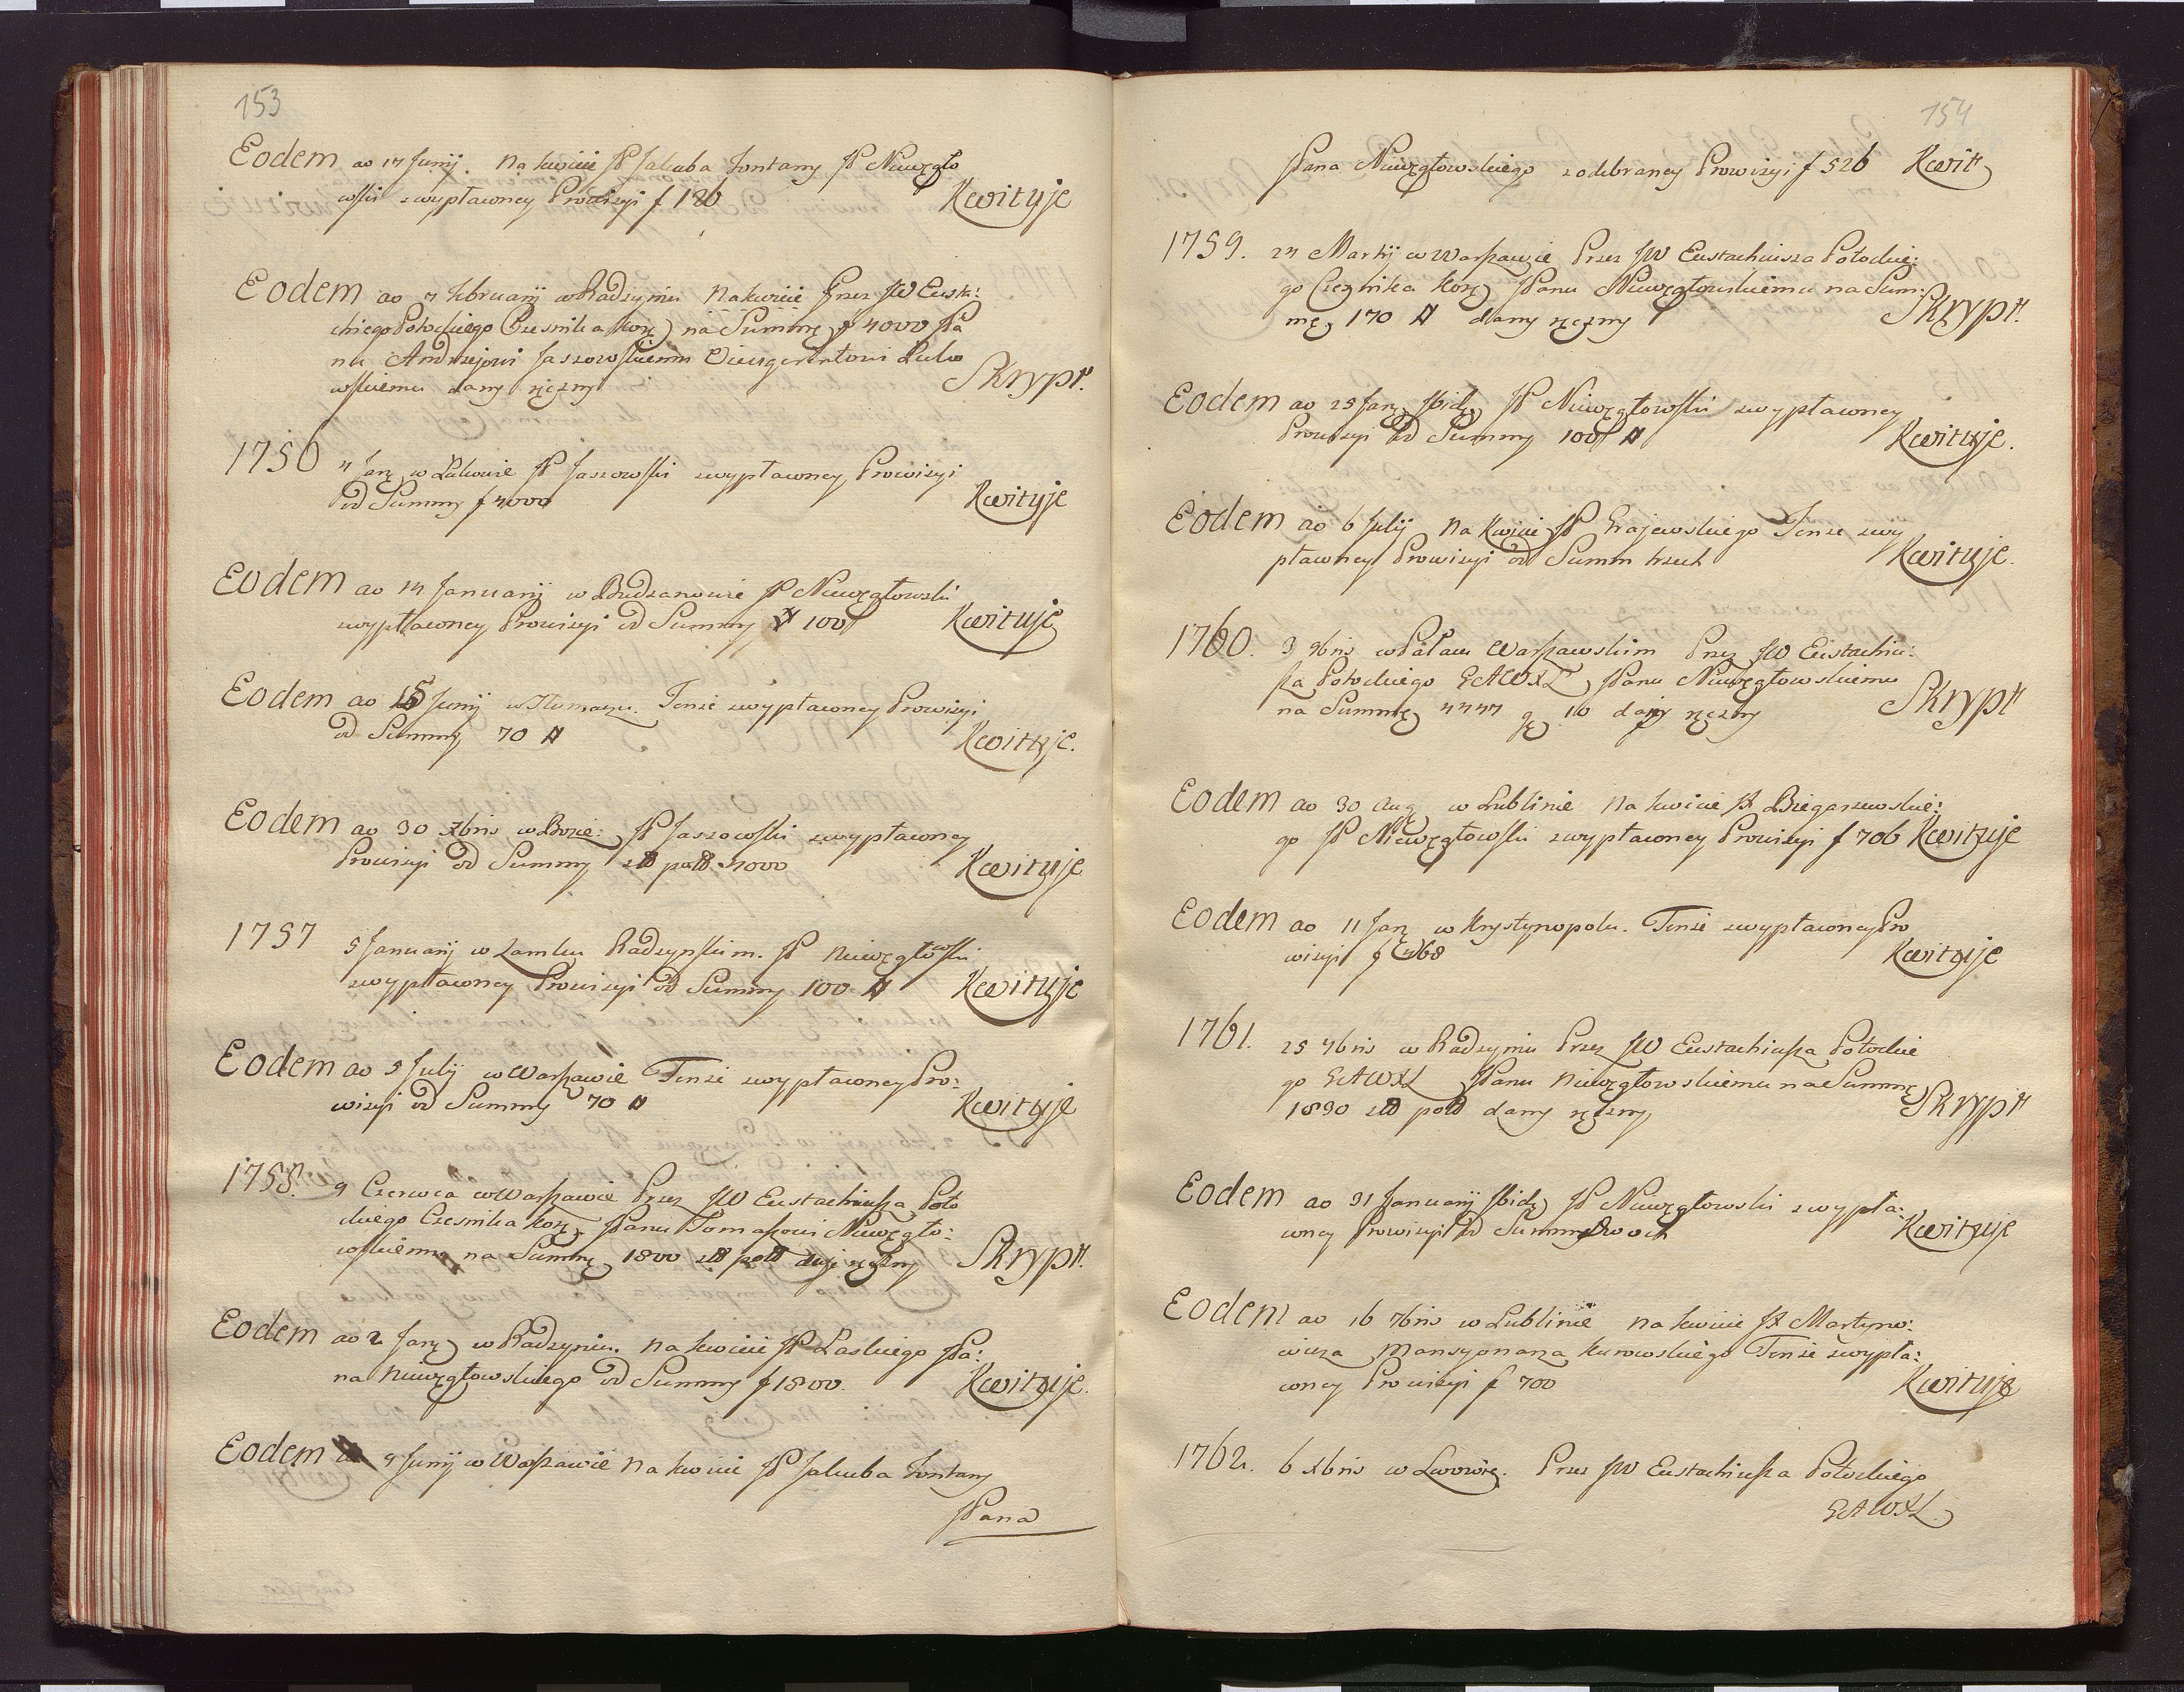 153
Eodem ao 17 Junij. Na kwicie JP Jakuba Fontany JP Niwęgło
wski z wypłaconey Prowizyi f 186 Kwituje
Eodem ao 7 Februarij w Radzyniu Na kwicie Przez JW Eusta:
chiego Potockiego Cześnika Korę na Summę f 4000 Pa
nu Andrzejowi Jaszowskiemu Vicesgerentowi Łuko
wskiemu dany ręczny Skrypt.
1756 4 Janę w Łukowie JP Jaszowski z wypłaconey Prowizyi
od Summy f 4000 Kwituje
Eodem ao 14 Januarij w Budzanowie JP Niwęgłowski
z wypłaconey Prowizyi od Summy # 100 Kwituje
Eodem ao 15 Junij w Tłumaczu. Tenże z wypłaconey Prowizyi
od Summy 70 # Kwituje.
Eodem ao 30 Xbris w JP Jaszowski z wypłaconey
Prowizyi od Summy złł poll 4000 Kwituje
1757 5 Januarij w Zamku Radzynskim. JP Niwęgłowski
z wypłaconey Prowizyi od Summy 100 # Kwituje
Eodem ao 5 Julij w Warszawie Tenże z wypłaconey Pro:
wizyi od Summy 70 # Kwituje
1758. 9 Czerwca w Warszawie Przez JW Eustachiusza Poto
ckiego Cześnika Korę JPanu Tomaszowi Niwęgło:
wskiemu na Summę 1800 złł poll ręczny Skrypt.
Eodem ao 2 Janę w Radzyniu. Na kwicie JP Łaskiego JPa:
na Niwęgłowskiego od Summy f 1800. Kwituje.
Eodem 9 Junij w Warszawie Na kwicie JP Jakuba Fontany
JPana
154
JPana Niwęgłowskiego z odebraney Prowizyi f 526 Kwitt
1759. 24 Martij w Warszawie Przez JW Eustachiusza Potockie:
go Cześnika Korę JPanu Niwęgłowskiemu na Sum:
mę 170 # dany ręczny Skrypt.
Eodem ao 25 Janę Ibidę JP Niwęgłowski z wypłaconey
Prowizyi od Summy 100 # Kwituje.
Eodem ao 6 Julij Na kwicie JP Grajewskiego Tenże z wy
płaconey Prowizyi od Summ trzech Kwituje.
1760. 3 9bris w Pałacu Warszawskim Przez JW Eustachiu:
sza Potockiego GAWXL JPanu Niwęgłowskiemu
na Summę 4447 gę 16 dany ręczny Skrypt
Eodem ao 30 Aug w Lublinie Na kwicie JX Biegaszewskie:
go JP Niewęgłowski z wypłaconey Prowizyi f 706 Kwituje
Eodem ao 11 Janę w Krystynopolu. Tenże z wypłaconey Pro
wizyi f 468 Kwituje
1761. 25 7bris w Radzyniu Przez JW Eustachiusza Potockie
go GAWXL JPanu Niewęgłowskiemu na Summę
1890 złł poll dany ręczny Skrypt
Eodem ao 31 Januarij Ibidę JP Niwęgłowski z wypła:
coney Prowizyi od Summ dwoch Kwituje
Eodem ao 16 7bris w Lublinie Na kwicie JX Martyno:
wicza Mansyonarza Kurowskiego Tenże z wypła:
coney Prowizyi f 700 Kwituje
1762. 6 Xbris w Lwowie. Przez JW Eustachiusza Potockiego
GAWXL